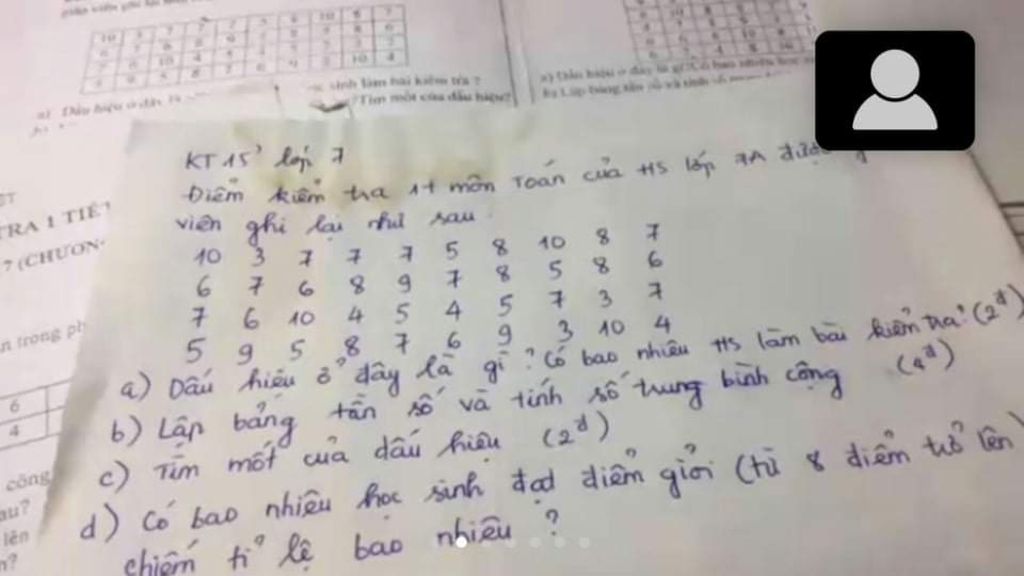 10 8 7
a) Dấu hiệu ở đây là sinh làm bài kiểm tra ?
Tìm mốt của dấu hiệu?
a) Dấu hiệu ở đây là gì?
b) Lập bảng tần số và tính số
KT 15' lớp 7
Điểm kiểm tra 1t môn Toán của HS lớp 7A
viên ghi lại như sau
10 3 7 7 7 5 8 10 8 7
6 7 6 8 9 7 8 5 8 6
7 6 10 4 5 4 5 7 3 7
5 9 5 8 7 6 9 3 10 4
a) Dấu hiệu ở đây là gì? Có bao nhiêu HS làm bài kiểm tra? (2đ)
b) Lập bảng tần số và tính số trung bình cộng (4đ)
c) Tìm mốt của dấu hiệu (2đ)
d) Có bao nhiêu học sinh đạt điểm giỏi (từ 8 điểm trở lên)
chiếm tỉ lệ bao nhiêu?
TRA 1 TIẾT
7 (CHƯƠN
n trong ph
6
4
công
au?
lên
n?